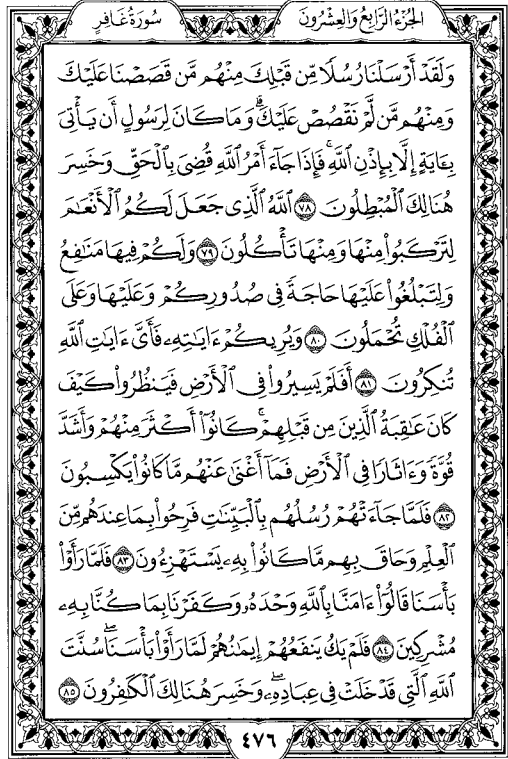 سُورَةُ غَافِرٍ
الجُزْءُ الرَّابِعُ وَالعِشْرُونَ
وَلَقَدْ أَرْسَلْنَا رُسُلًا مِّن قَبْلِكَ مِنْهُم مَّن قَصَصْنَا عَلَيْكَ
وَمِنْهُم مَّن لَّمْ نَقْصُصْ عَلَيْكَۗ وَمَا كَانَ لِرَسُولٍ أَن يَأْتِىَ
بِـَٔايَةٍ إِلَّا بِإِذْنِ ٱللَّهِۚ فَإِذَا جَآءَ أَمْرُ ٱللَّهِ قُضِىَ بِٱلْحَقِّ وَخَسِرَ
هُنَالِكَ ٱلْمُبْطِلُونَ ٧٨ ٱللَّهُ ٱلَّذِى جَعَلَ لَكُمُ ٱلْأَنْعَٰمَ
لِتَرْكَبُوا۟ مِنْهَا وَمِنْهَا تَأْكُلُونَ ٧٩ وَلَكُمْ فِيهَا مَنَٰفِعُ
وَلِتَبْلُغُوا۟ عَلَيْهَا حَاجَةً فِى صُدُورِكُمْ وَعَلَيْهَا وَعَلَى
ٱلْفُلْكِ تُحْمَلُونَ ٨٠ وَيُرِيكُمْ ءَايَٰتِهِۦ فَأَىَّ ءَايَٰتِ ٱللَّهِ
تُنكِرُونَ ٨١ أَفَلَمْ يَسِيرُوا۟ فِى ٱلْأَرْضِ فَيَنظُرُوا۟ كَيْفَ
كَانَ عَٰقِبَةُ ٱلَّذِينَ مِن قَبْلِهِمْۚ كَانُوٓا۟ أَكْثَرَ مِنْهُمْ وَأَشَدَّ
قُوَّةً وَءَاثَارًا فِى ٱلْأَرْضِ فَمَآ أَغْنَىٰ عَنْهُم مَّا كَانُوا۟ يَكْسِبُونَ
٨٢ فَلَمَّا جَآءَتْهُمْ رُسُلُهُم بِٱلْبَيِّنَٰتِ فَرِحُوا۟ بِمَا عِندَهُم مِّنَ
ٱلْعِلْمِ وَحَاقَ بِهِم مَّا كَانُوا۟ بِهِۦ يَسْتَهْزِءُونَ ٨٣ فَلَمَّا رَأَوْا۟
بَأْسَنَا قَالُوٓا۟ ءَامَنَّا بِٱللَّهِ وَحْدَهُۥ وَكَفَرْنَا بِمَا كُنَّا بِهِۦ
مُشْرِكِينَ ٨٤ فَلَمْ يَكُ يَنفَعُهُمْ إِيمَٰنُهُمْ لَمَّا رَأَوْا۟ بَأْسَنَاۖ سُنَّتَ
ٱللَّهِ ٱلَّتِى قَدْ خَلَتْ فِى عِبَادِهِۦۖ وَخَسِرَ هُنَالِكَ ٱلْكَٰفِرُونَ ٨٥
٤٧٦